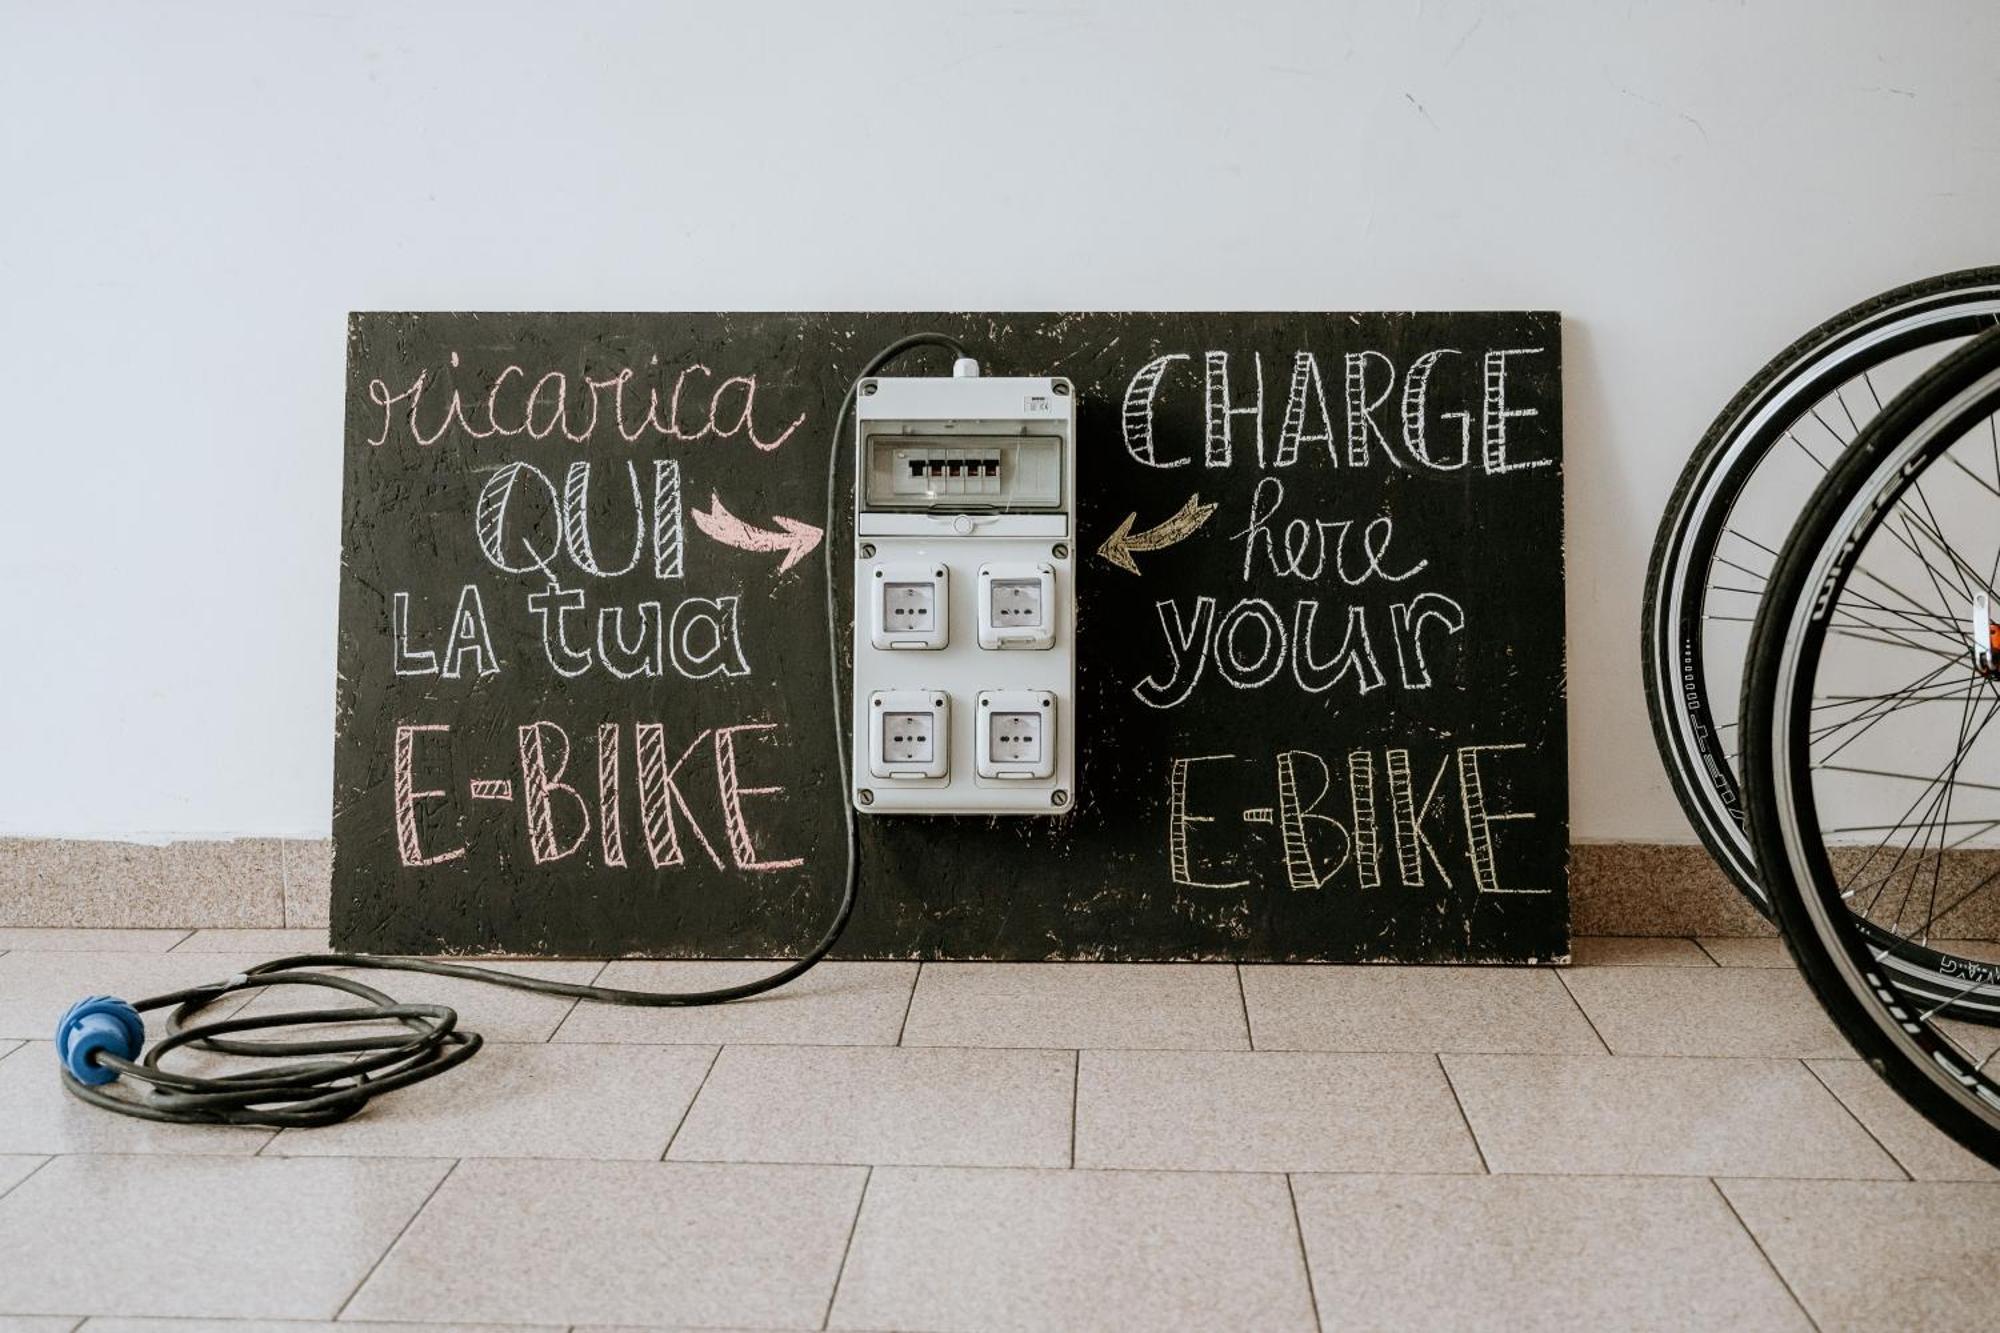 ricarica
QUI
LA tua
E-BIKE
CHARGE
here
your
E-BIKE